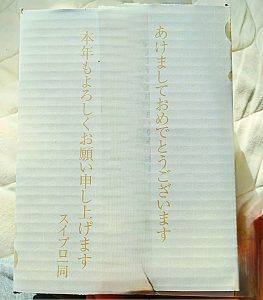 あけましておめでとうございます
本年もよろしくお願い申し上げます
スイプロ一同